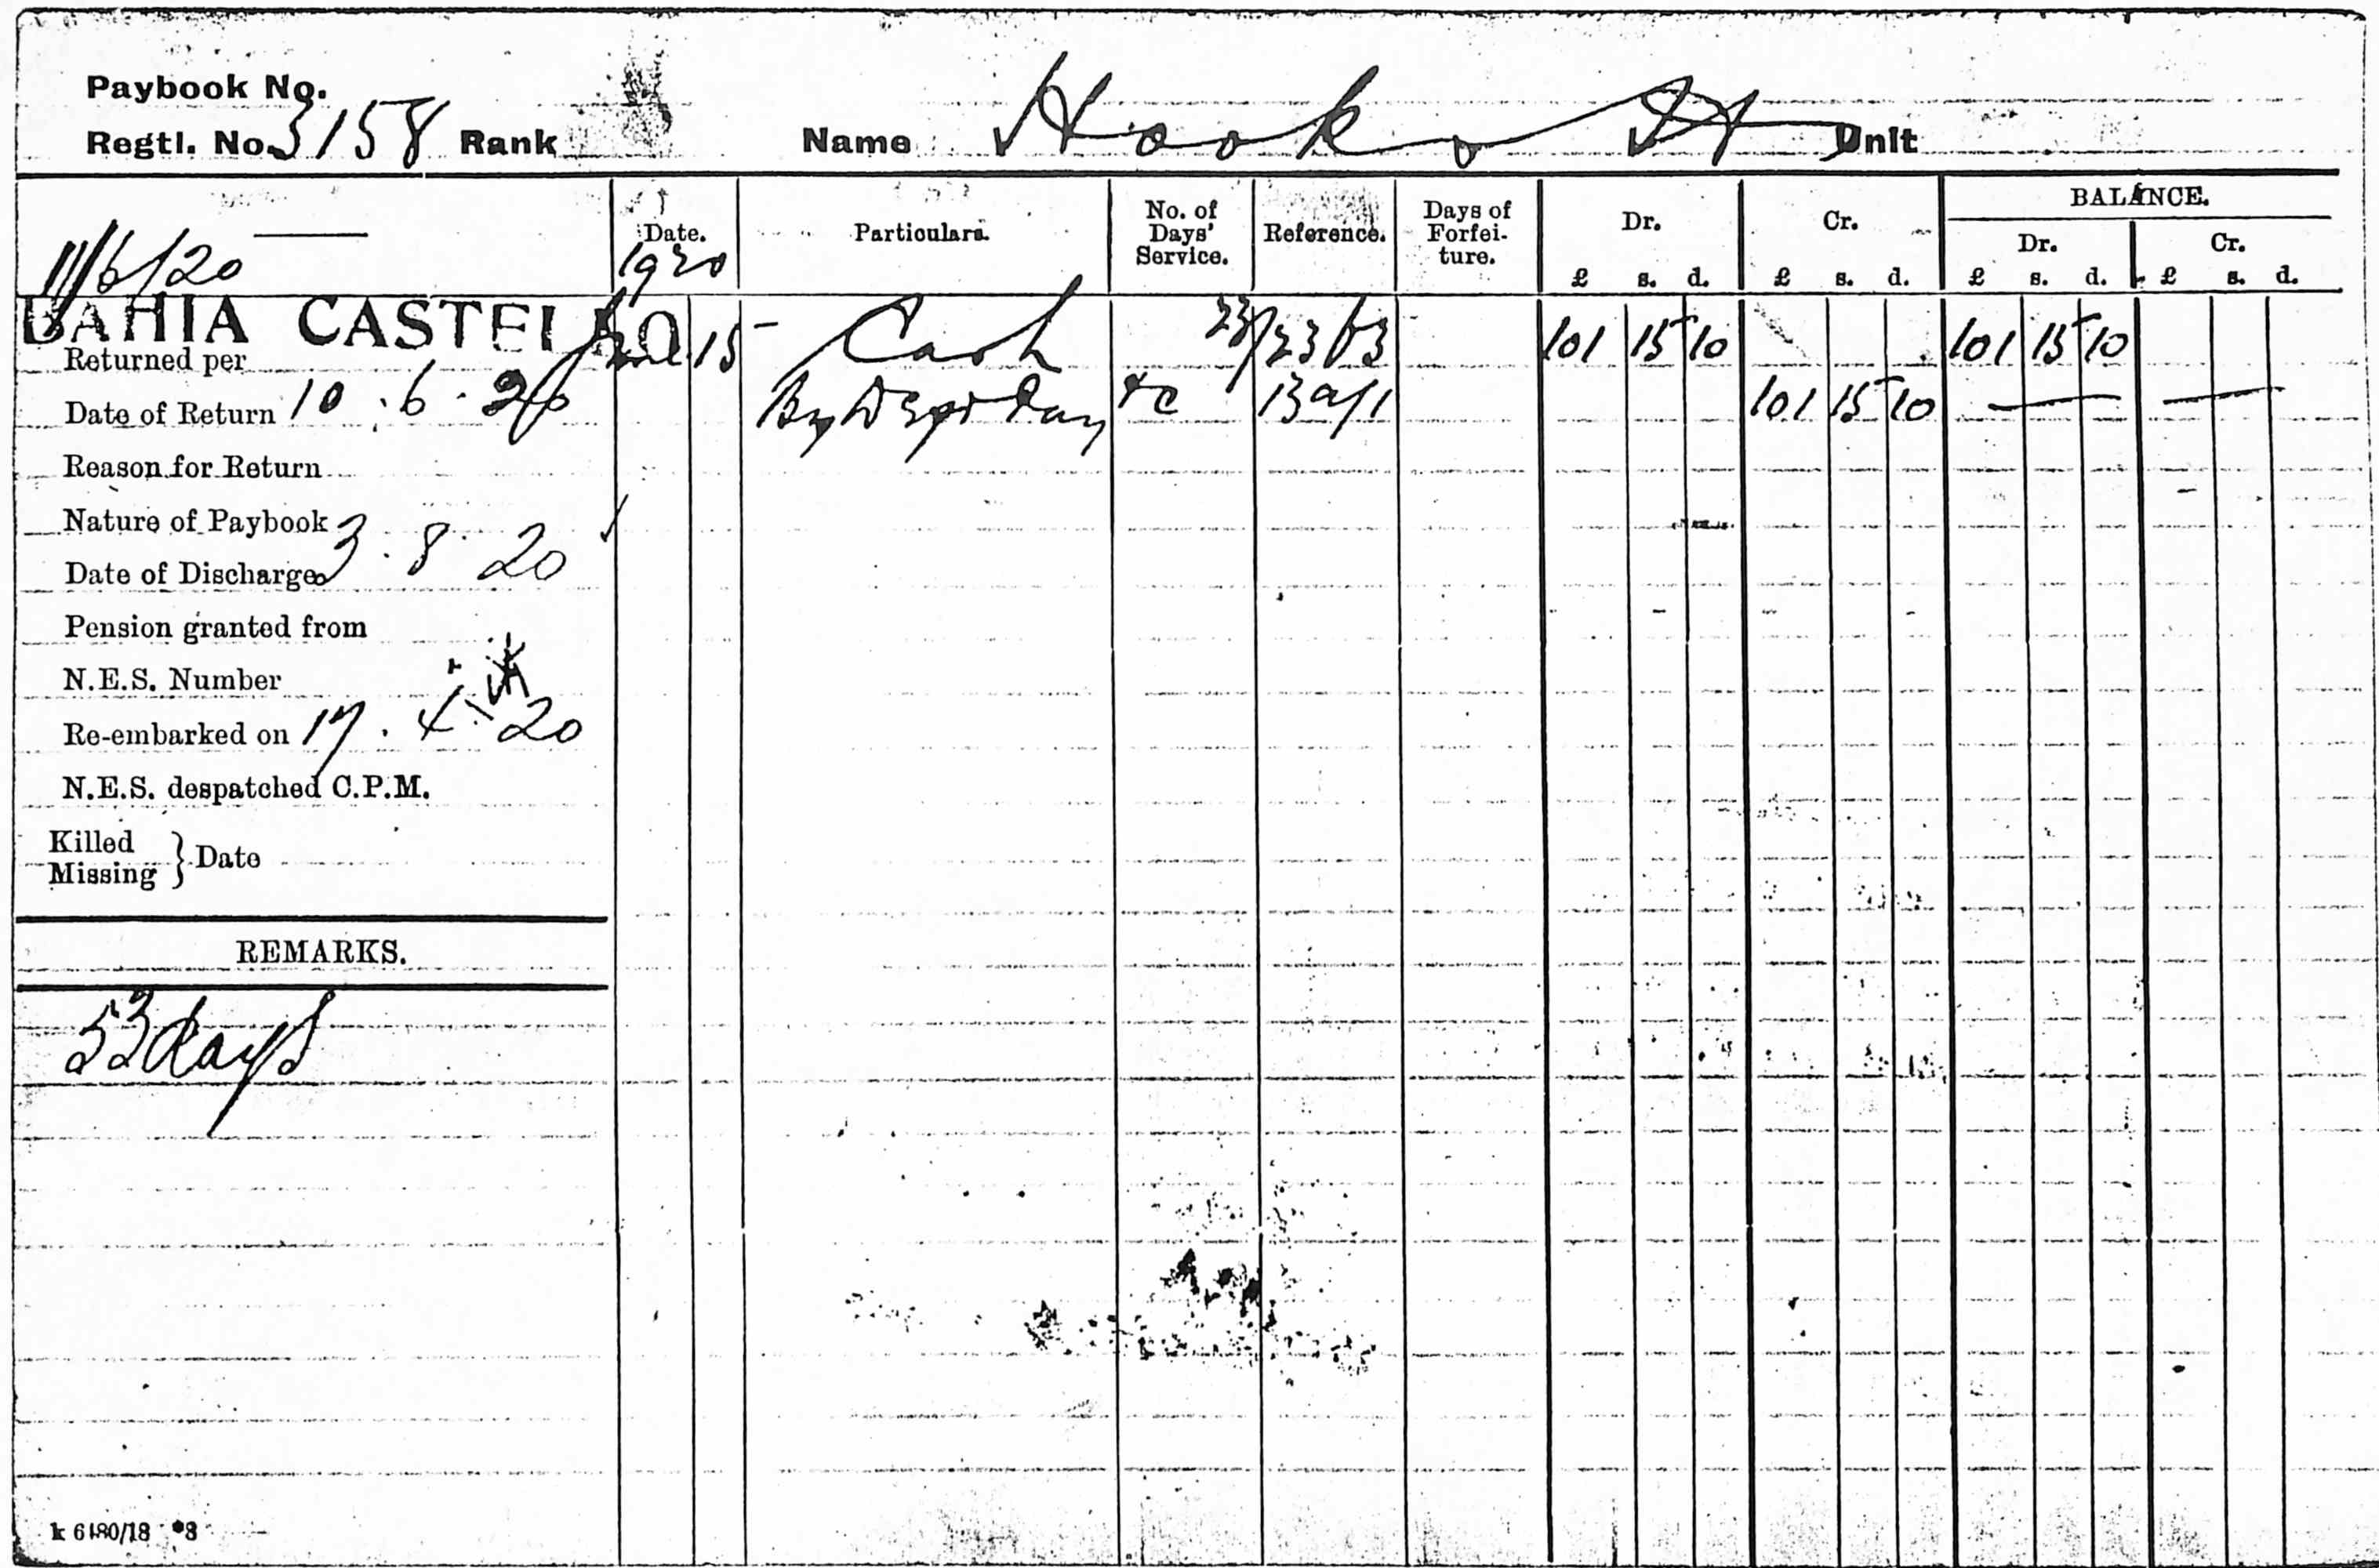 Paybook No.
Regtl. No. 3158 Rank Name Hook Unit
11/6/20
Date. Particulars. No. of Days' Service. Reference. Days of Forfei- ture. Dr. Cr. BALANCE.
1920 Dr. Cr.
£ s. d. £ s. d. £ s. d. £ s. d.
BAHIA CASTELLO
Returned per June 15 - Cash 101 15 10 101 15 10
Date of Return 10.6.20 By Dept Pay &c 101 15 10 — —
Reason for Return
Nature of Paybook
Date of Discharge 3.8.20
Pension granted from
N.E.S. Number
Re-embarked on 17. 4. 20
N.E.S. despatched C.P.M.
Killed
Missing } Date
REMARKS.
53 days
k 6480/18 *3